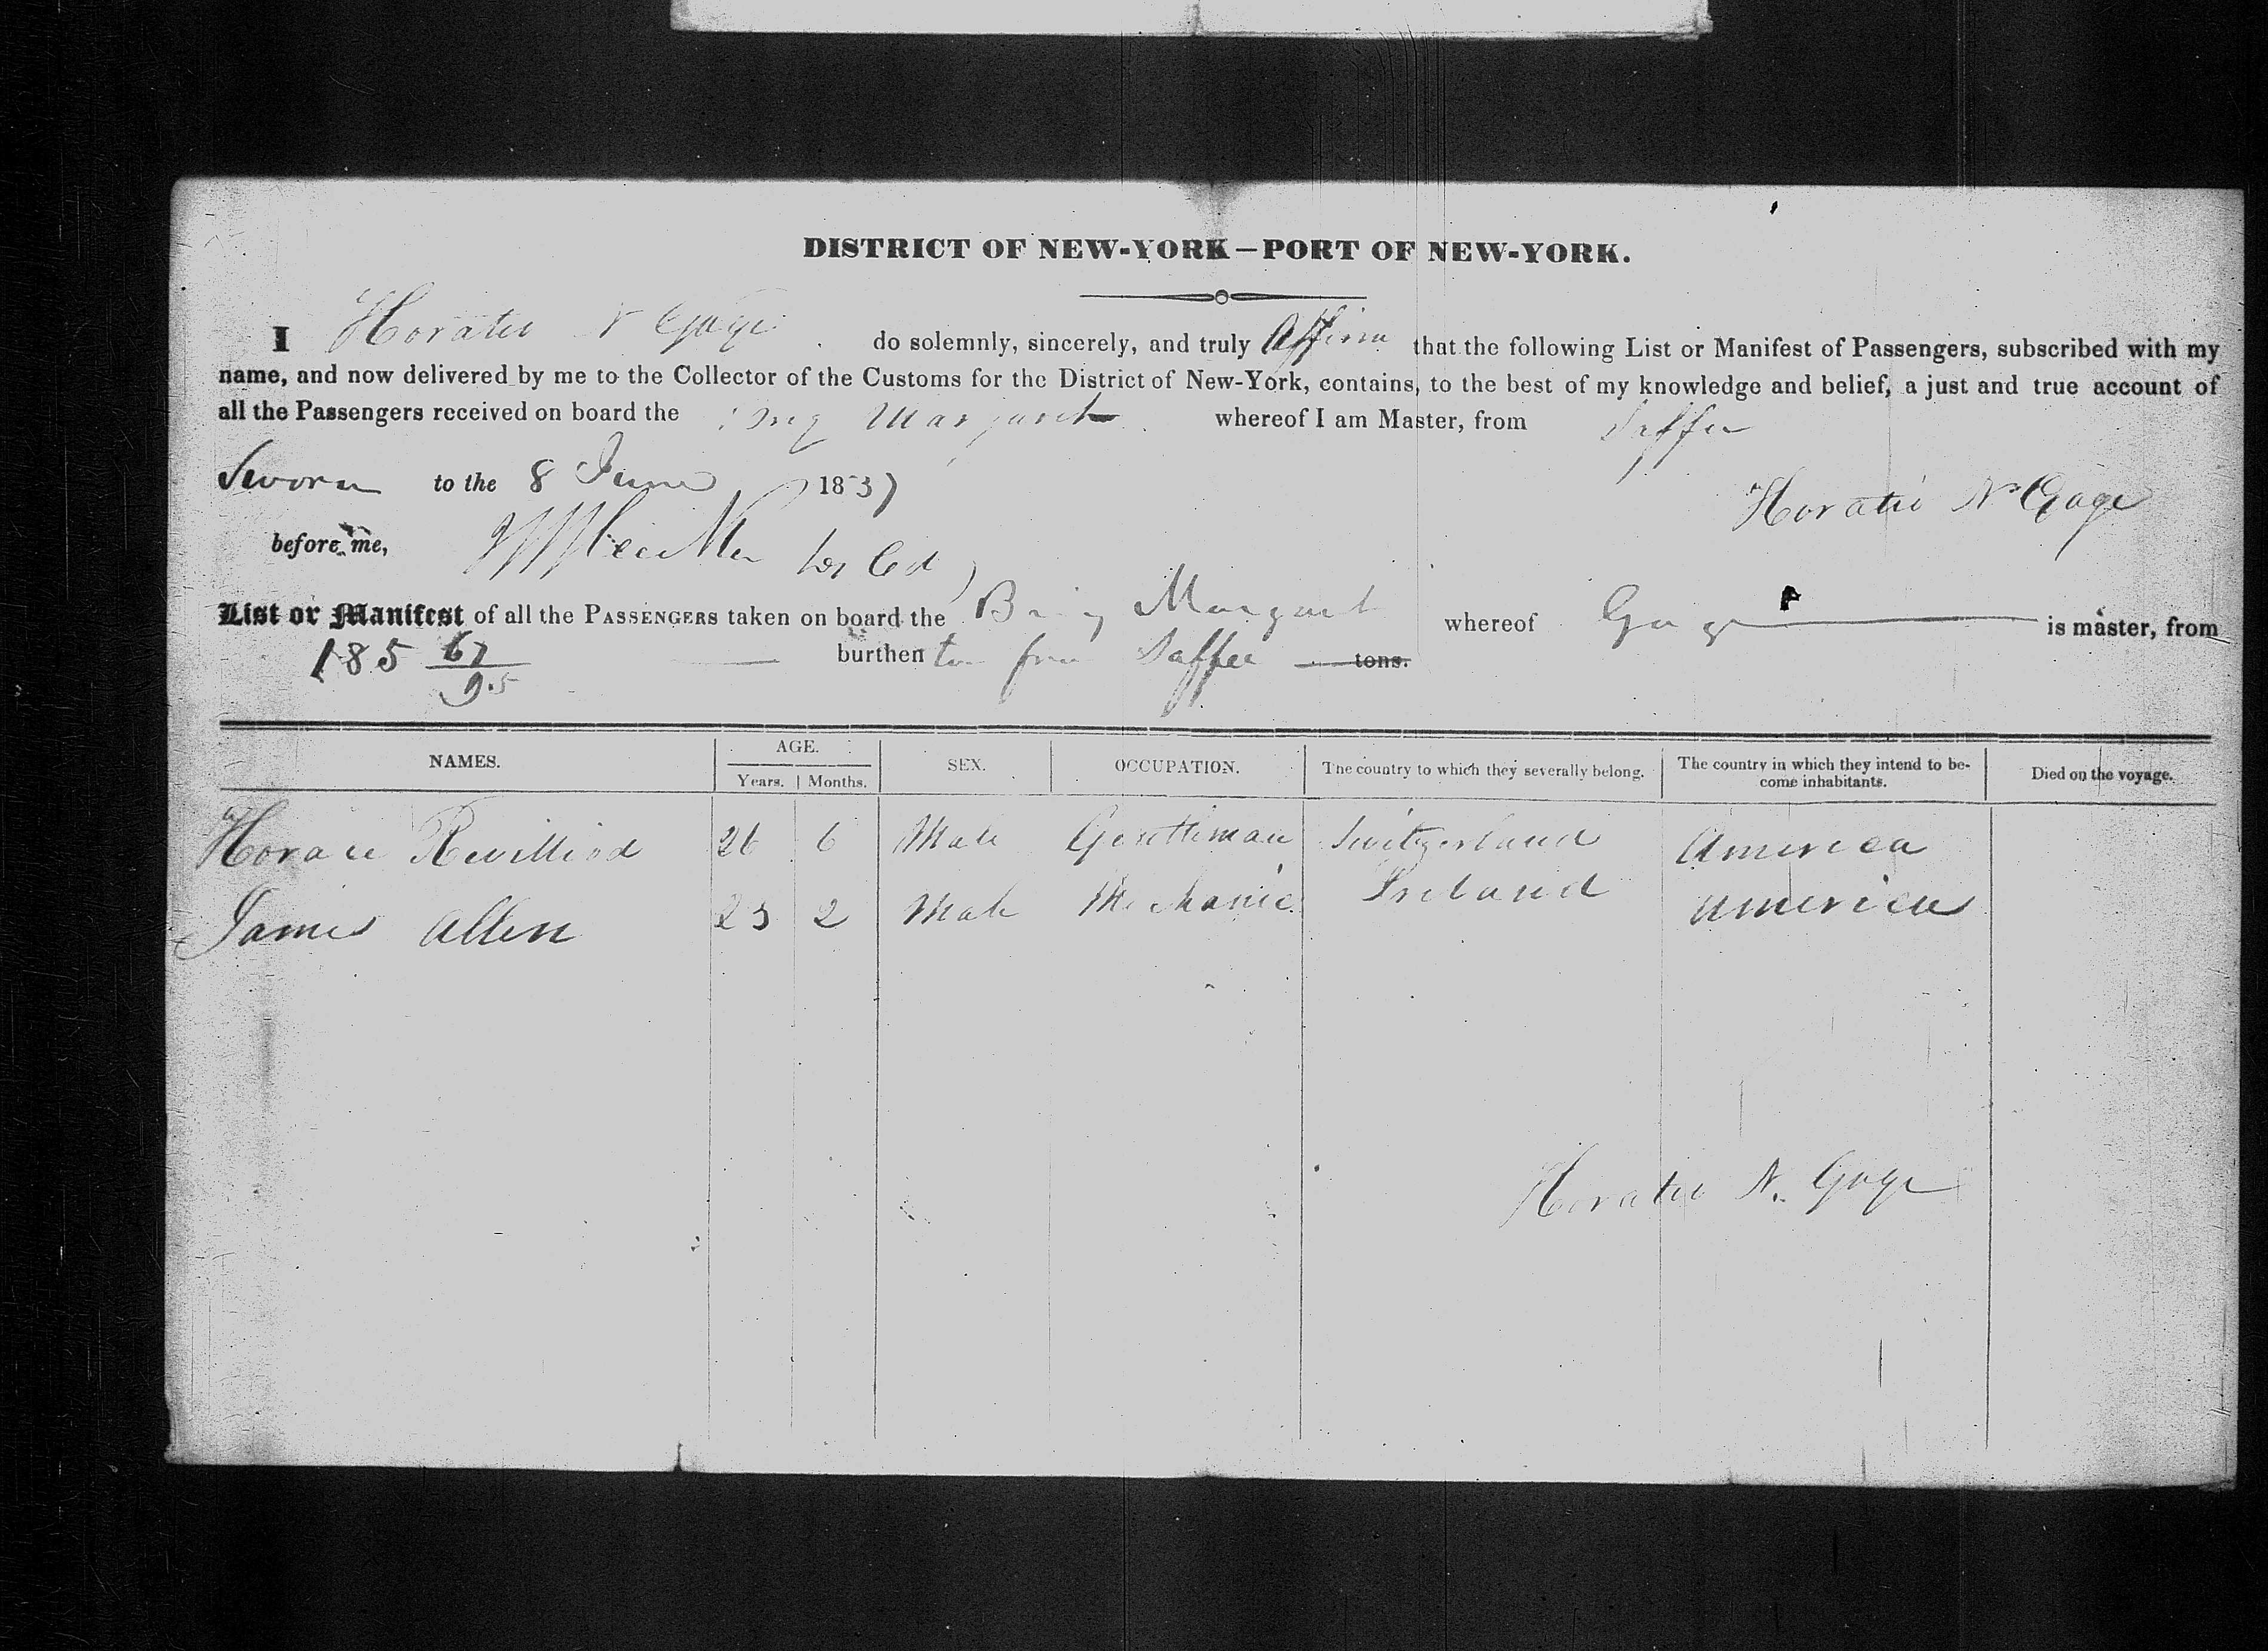 DISTRICT OF NEW-YORK—PORT OF NEW-YORK.
I Horatio N Gage do solemnly, sincerely, and truly Affirm that the following List or Manifest of Passengers, subscribed with my
name, and now delivered by me to the Collector of the Customs for the District of New-York, contains, to the best of my knowledge and belief, a just and true account of
all the Passengers received on board the Brig Margaret whereof I am Master, from Saffee
Sworn to the 8 June 1837
Horatio N. Gage
before me,
List or Manifest of all the PASSENGERS taken on board the Brig Margaret whereof Gage is master, from
185 67/95 burthen ton from Saffee tons.
NAMES. AGE. Years. Months. SEX. OCCUPATION. The country to which they severally belong. The country in which they intend to become inhabitants. Died on the voyage.
Horace Revilliod 26 6 Male Gentleman Switzerland America
James Allen 23 2 Male Mechanic Ireland America
Horatio N. Gage